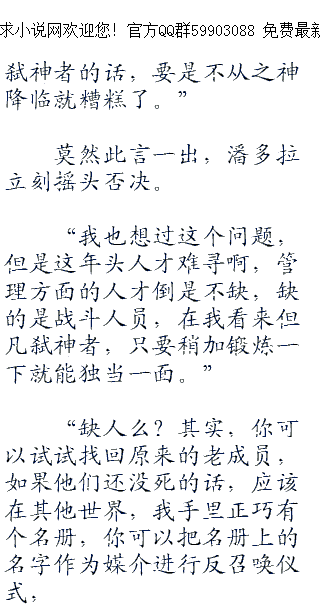 求小说网欢迎您！官方QQ群59903088 免费最新
弑神者的话，要是不从之神
降临就糟糕了。”
莫然此言一出，潘多拉
立刻摇头否决。
“我也想过这个问题，
但是这年头人才难寻啊，管
理方面的人才倒是不缺，缺
的是战斗人员，在我看来但
凡弑神者，只要稍加锻炼一
下就能独当一面。”
“缺人么？其实，你可
以试试找回原来的老成员，
如果他们还没死的话，应该
在其他世界，我手里正巧有
个名册，你可以把名册上的
名字作为媒介进行反召唤仪
式，